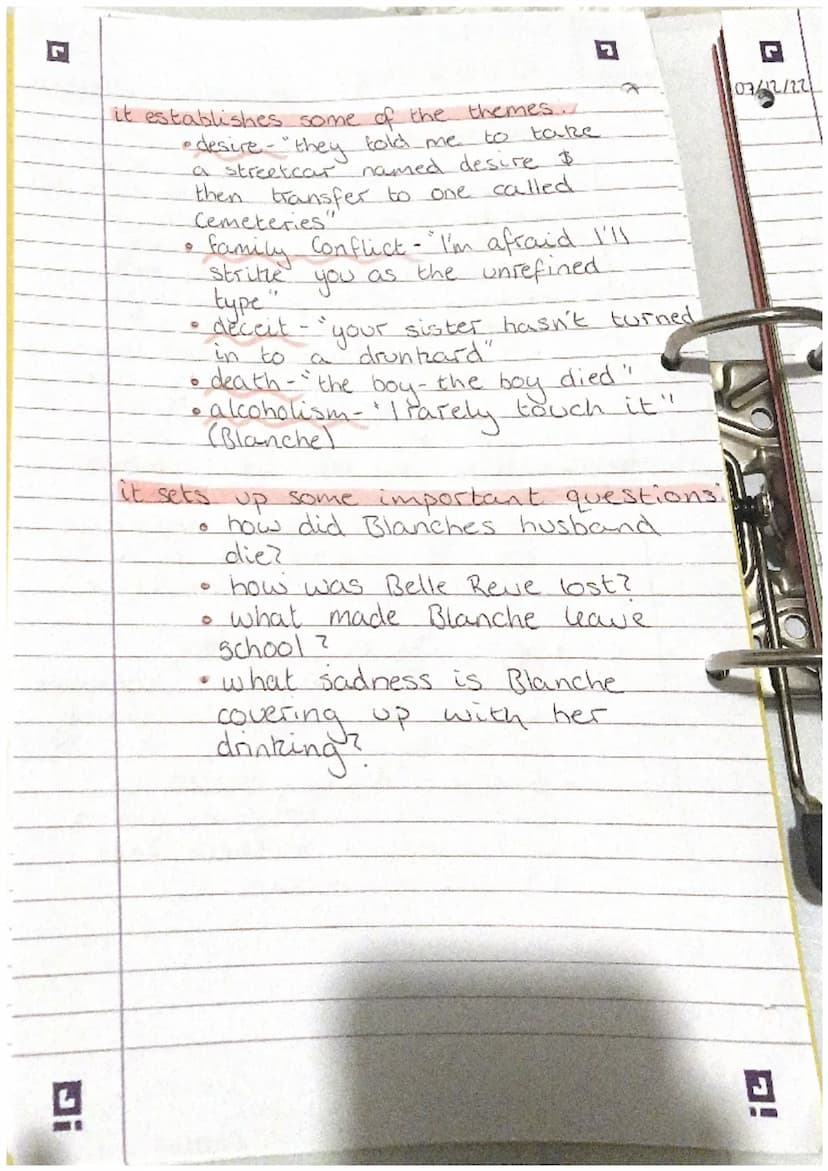 07/12/22
it establishes some of the themes...
• desire - "they told me to take
a streetcar named desire &
then transfer to one called
Cemeteries"
• family conflict - "I'm afraid I'll
strike you as the unrefined
type"
• deceit - "your sister hasn't turned
in to a drunkard"
• death - "the boy - the boy died"
• alcoholism - "I rarely touch it"
(Blanche)
it sets up some important questions:
• how did Blanches husband
die?
• how was Belle Reve lost?
• what made Blanche leave
school?
• what sadness is Blanche
covering up with her
drinking?